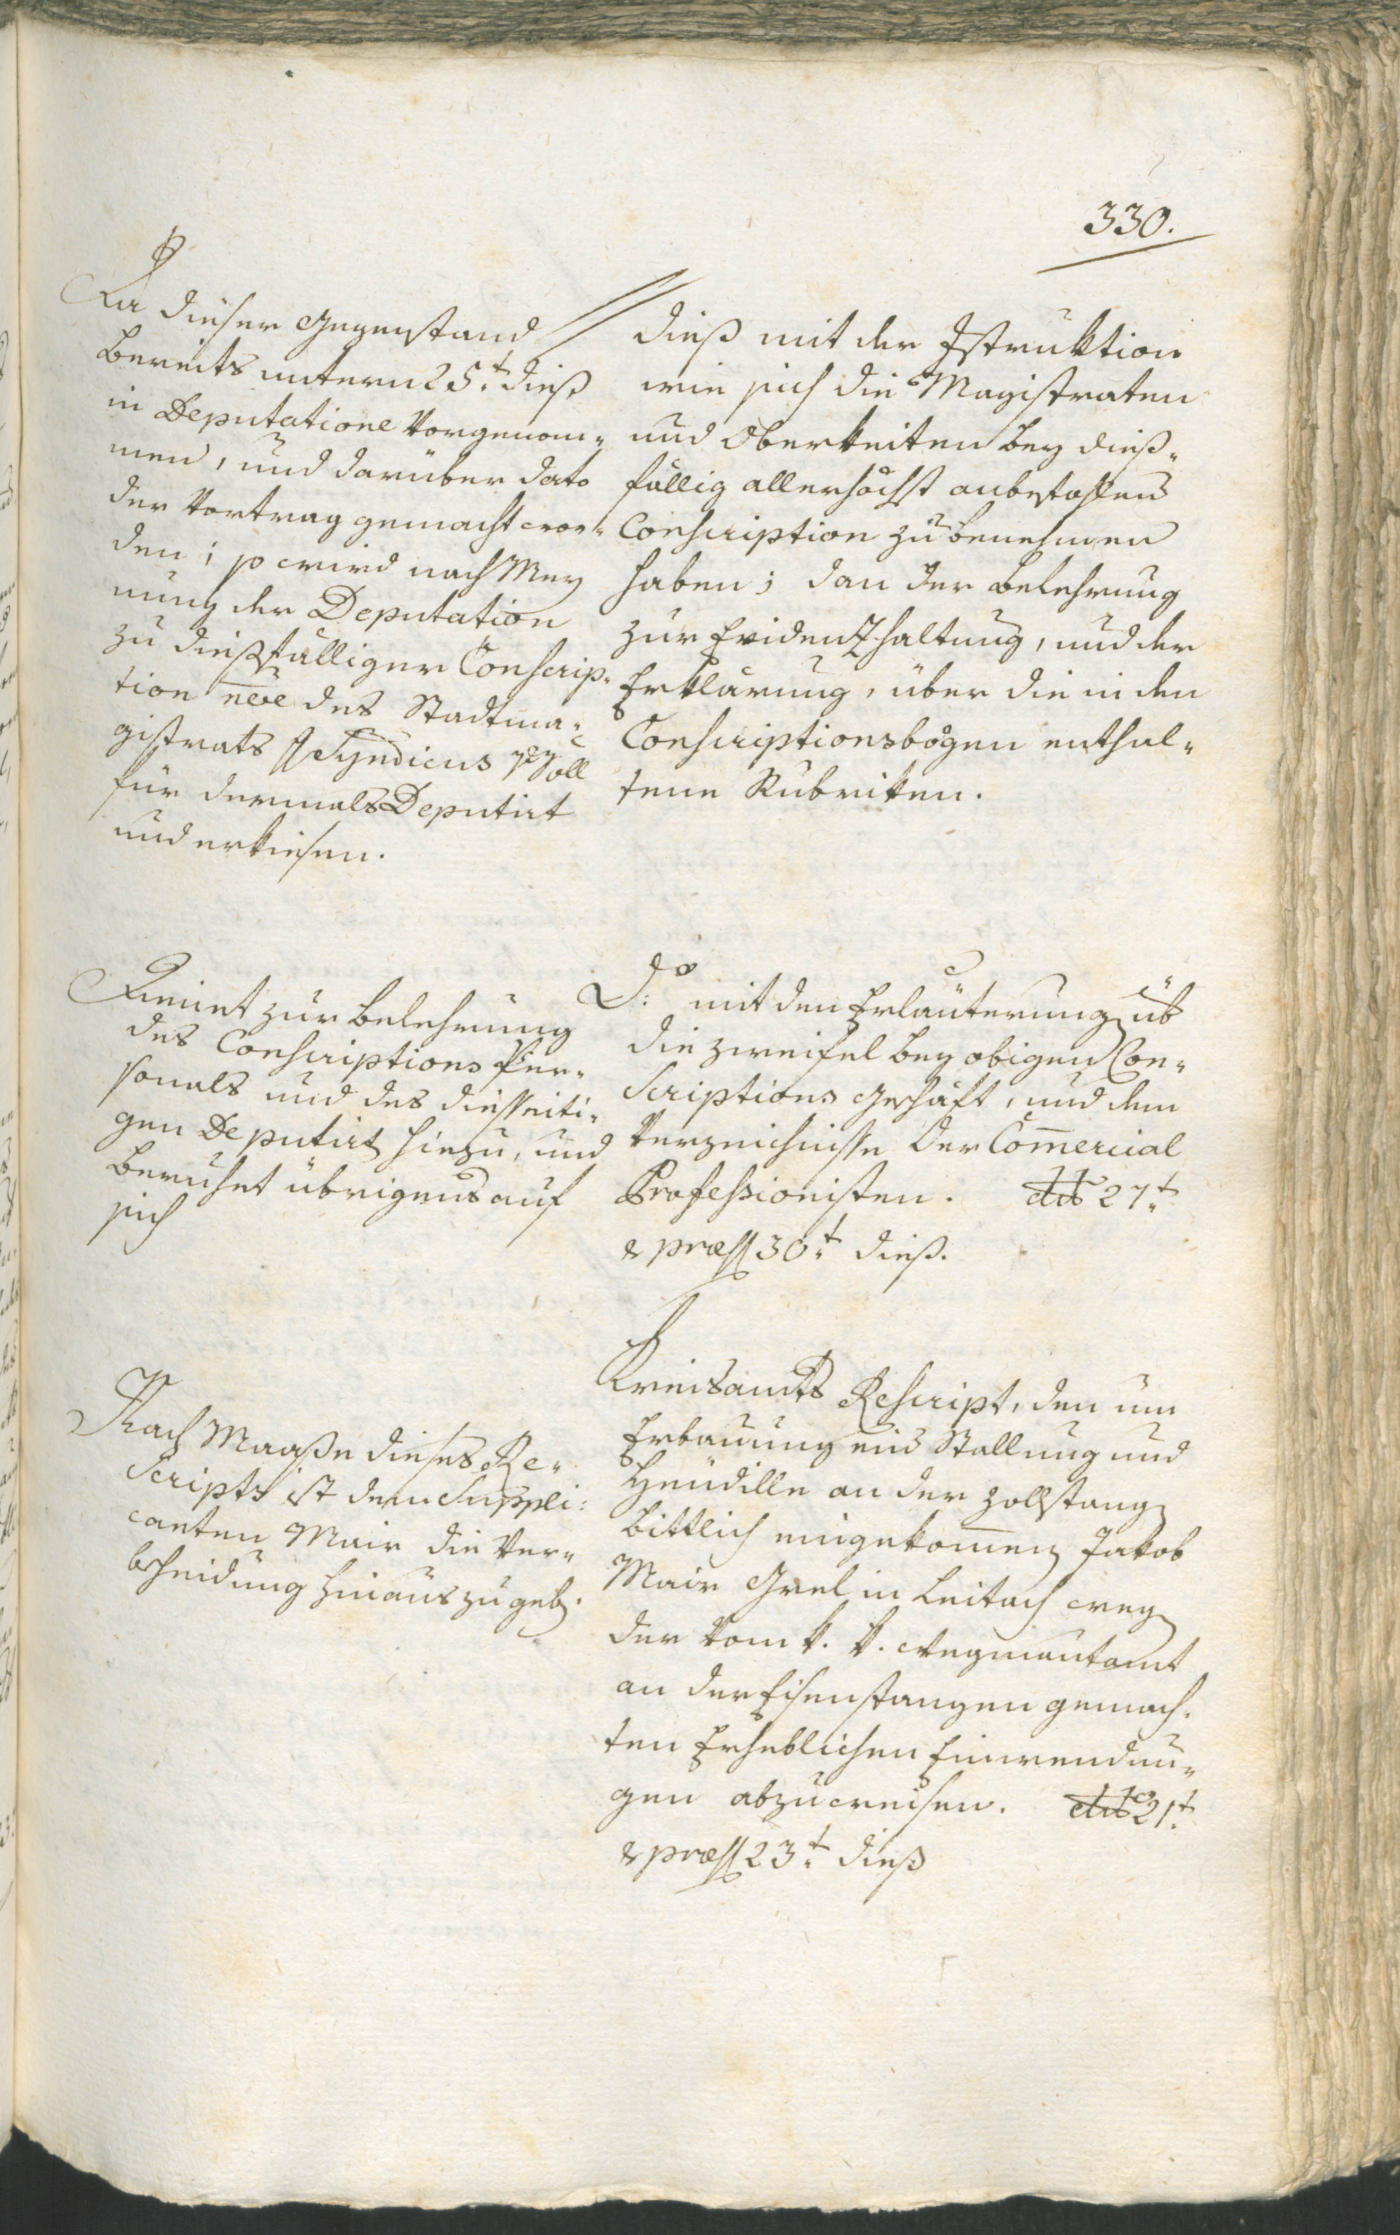 330.
Da dieser Gegenstand
bereits untern 25.t dieß
in Deputatione vorgenom-
men, und darüber dato
der Vortrag gemacht wor-
den; so wird nach Mey
nung der Deputation
zu dießfälliger Conscrip-
tion nõe des Stadtma-
gistrats Syndicus
für dermals Deputirt
und erkiesen.
dieß mit der Istruktion
wie sich die Magistraten
und Oberkeiten bey dieß-
fällig allerhöchst anbefohlens
Conscription zu benehmen
haben; dan der Belehrung
zur Evidenzhaltung, und der
Erklärung, über die in den
Conscriptionsbögen enthal-
tene Rubriken.
Dienet zur Belehrung
des Conscriptions Per-
sonals und des diesseiti-
gen Deputirt hiezu, und
beruhet übrigens auf
sich
Do: mit den Erläuterung üb
die Zweifel bey obigen Con-
scriptions Geschäft, und dem
Verzeichnisse der Com̄ercial
Professionisten. dto 27.t
& præss 30.t dieß.
Nach Maaße dieses Re-
scripts ist dem Suppli-
canten Mair die Ver-
bscheidung hinauszugeb.
Kreisamts Rescript, den um
Erbauung eins Stallung und
Heudille an der Zollstang
bittlich eingekom̄en Jakob
Mair Grel in Leitach weg
der vom k. k. Wegmautamt
an der Eisenstangen gemach-
ten Erheblichen Einwendun-
gen abzuweisen. dto 21.t
& præss 23.t dieß